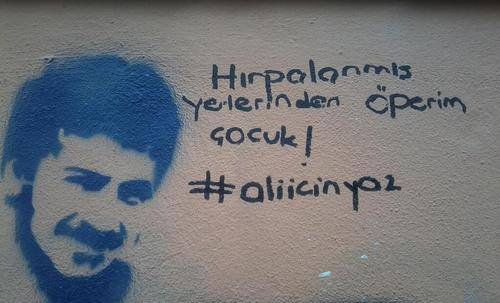 Hırpalanmış
yerlerinden öperim
çocuk!
#aliicinyaz